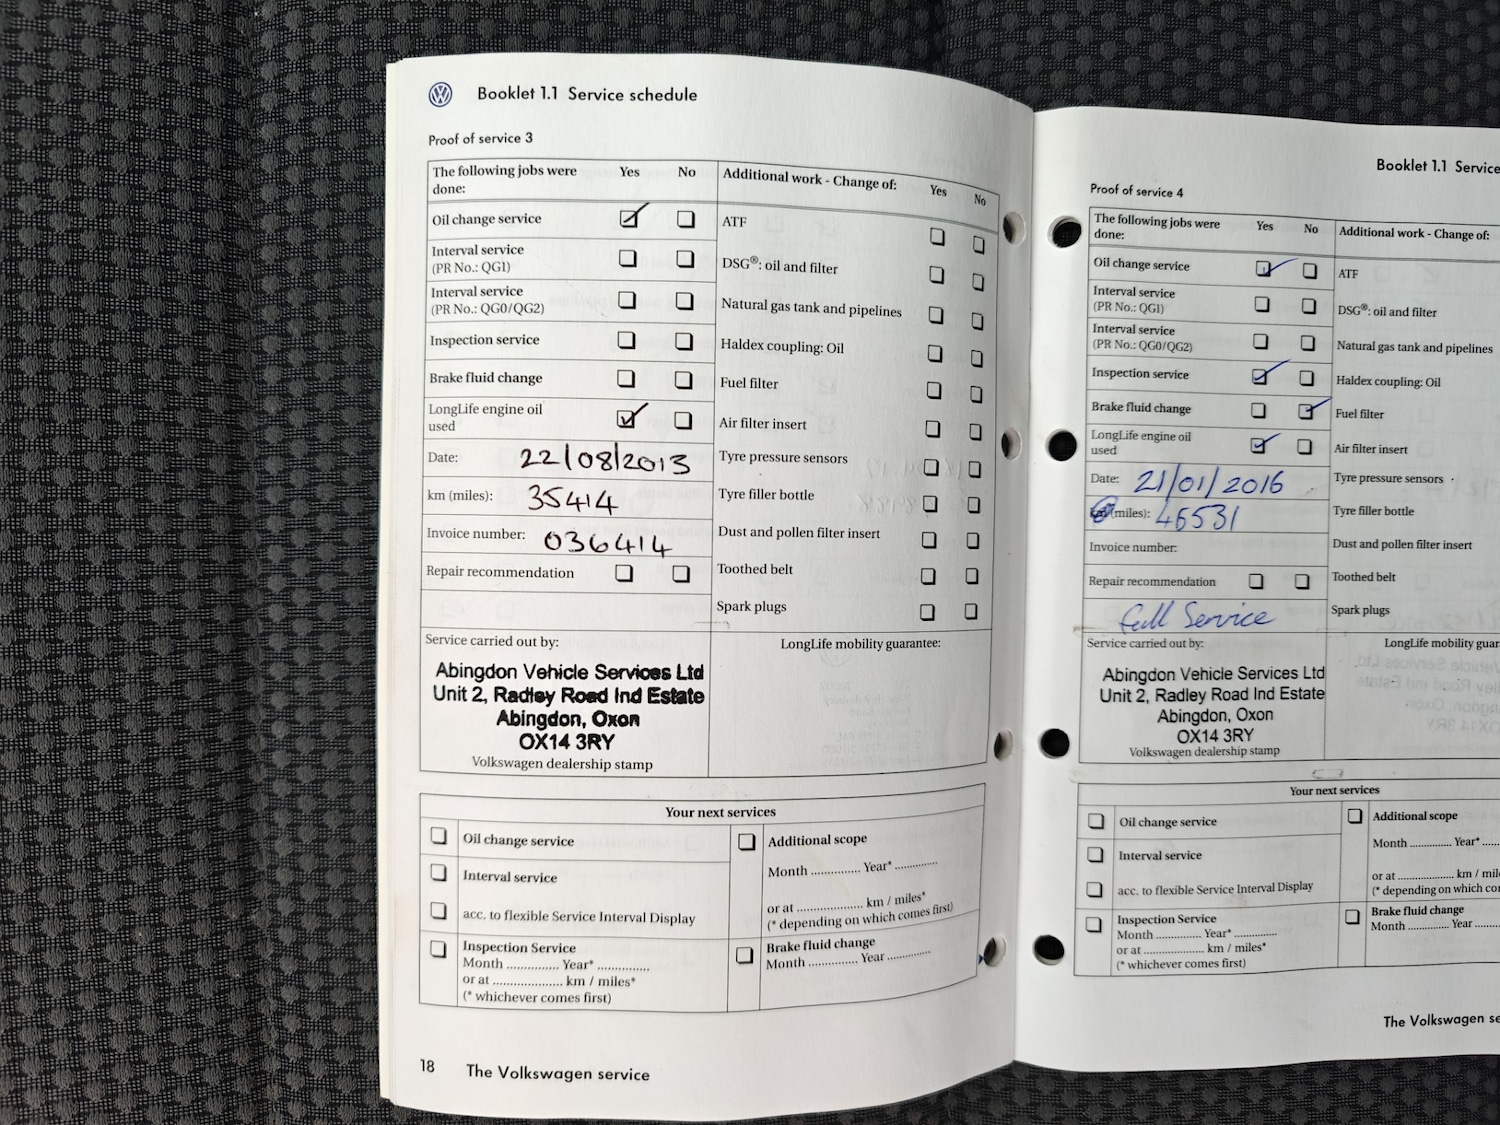 Booklet 1.1 Service schedule
Proof of service 3
The following jobs were done:
Yes
No
Additional work - Change of:
Yes
No
Oil change service
Interval service
(PR No.: QG1)
Interval service
(PR No.: QG0/QG2)
Inspection service
Brake fluid change
LongLife engine oil
used
Date: 22/08/2013
km (miles): 35414
Invoice number: 036414
Repair recommendation
ATF
DSG®: oil and filter
Natural gas tank and pipelines
Haldex coupling: Oil
Fuel filter
Air filter insert
Tyre pressure sensors
Tyre filler bottle
Dust and pollen filter insert
Toothed belt
Spark plugs
Service carried out by:
Abingdon Vehicle Services Ltd
Unit 2, Radley Road Ind Estate
Abingdon, Oxon
OX14 3RY
Volkswagen dealership stamp
LongLife mobility guarantee:
Your next services
Oil change service
Interval service
acc. to flexible Service Interval Display
Inspection Service
Month ............... Year* ...............
or at .................... km / miles*
(* whichever comes first)
Additional scope
Month .............. Year* .............
or at .................... km / miles*
(* depending on which comes first)
Brake fluid change
Month .............. Year .............
18 The Volkswagen service
Booklet 1.1 Service
Proof of service 4
The following jobs were
done:
Yes
No
Additional work - Change of:
Oil change service
Interval service
(PR No.: QG1)
Interval service
(PR No.: QG0/QG2)
Inspection service
Brake fluid change
LongLife engine oil
used
Date: 21/01/2016
(miles): 46531
Invoice number:
Repair recommendation
Full Service
ATF
DSG®: oil and filter
Natural gas tank and pipelines
Haldex coupling: Oil
Fuel filter
Air filter insert
Tyre pressure sensors
Tyre filler bottle
Dust and pollen filter insert
Toothed belt
Spark plugs
Service carried out by:
Abingdon Vehicle Services Ltd
Unit 2, Radley Road Ind Estate
Abingdon, Oxon
OX14 3RY
Volkswagen dealership stamp
LongLife mobility
Your next services
Oil change service
Interval service
acc. to flexible Service Interval Display
Inspection Service
Month .............. Year* .............
or at .................. km / miles*
(* whichever comes first)
Additional scope
Month .............. Year* ......
or at .................. km /
(* depending on which
Brake fluid change
Month .............. Year ......
The Volkswagen